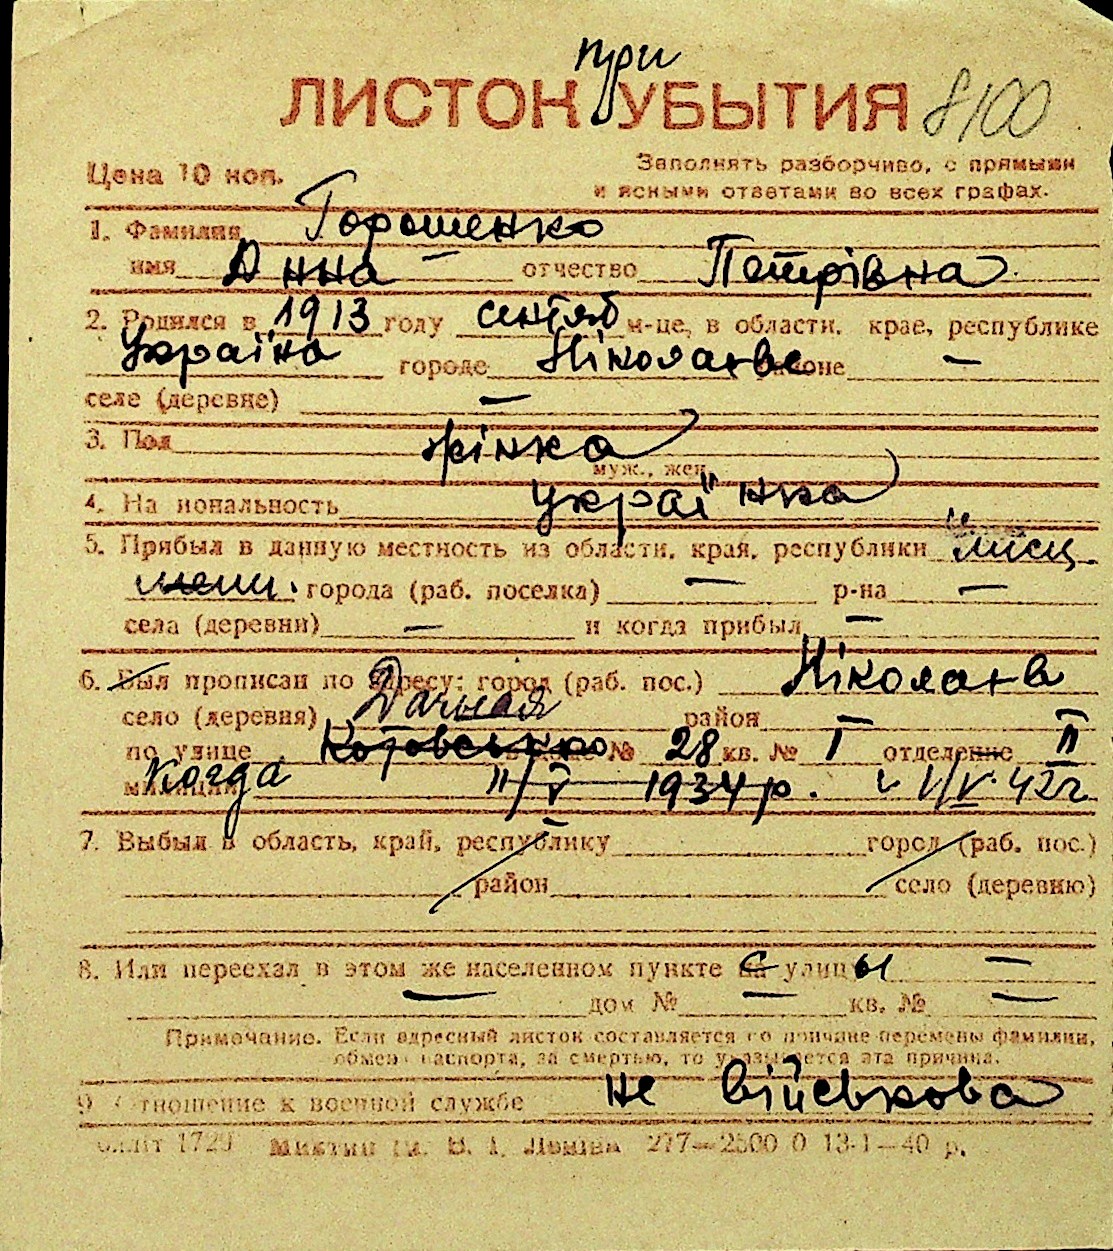 при
ЛИСТОК УБЫТИЯ 8100
Цена 10 коп.
Заполнять разборчиво, с прямыми
и ясными ответами во всех графах.
1. Фамилия Горошенко
имя Анна отчество Петрівна
2. Родился в 1913 году сентяб м-це, в области, крае, республике
Україна городе Ніколаєве районе —
селе (деревне) —
3. Пол жінка
муж., жен.
4. Национальность українка
5. Прибыл в данную местность из области, края, республики місц
города (раб. поселка) — р-на —
села (деревни) — и когда прибыл —
6. Был прописан по адресу: город (раб. пос.) Ніколаєв
село (деревня) Дачная район —
по улице Котовського № 28 кв. № I отделение II
милиции Когда 11/V 1934 р. 1/V 42 г
7. Выбыл в область, край, республику город (раб. пос.)
район село (деревню)
8. Или переехал в этом же населенном пункте с улицы —
— дом № — кв. № —
Примечание. Если адресный листок составляется по причине перемены фамилии,
обмена паспорта, за смертью, то указывается эта причина.
9. Отношение к военной службе не військова
1729 277—2500 0 13-1—40 р.